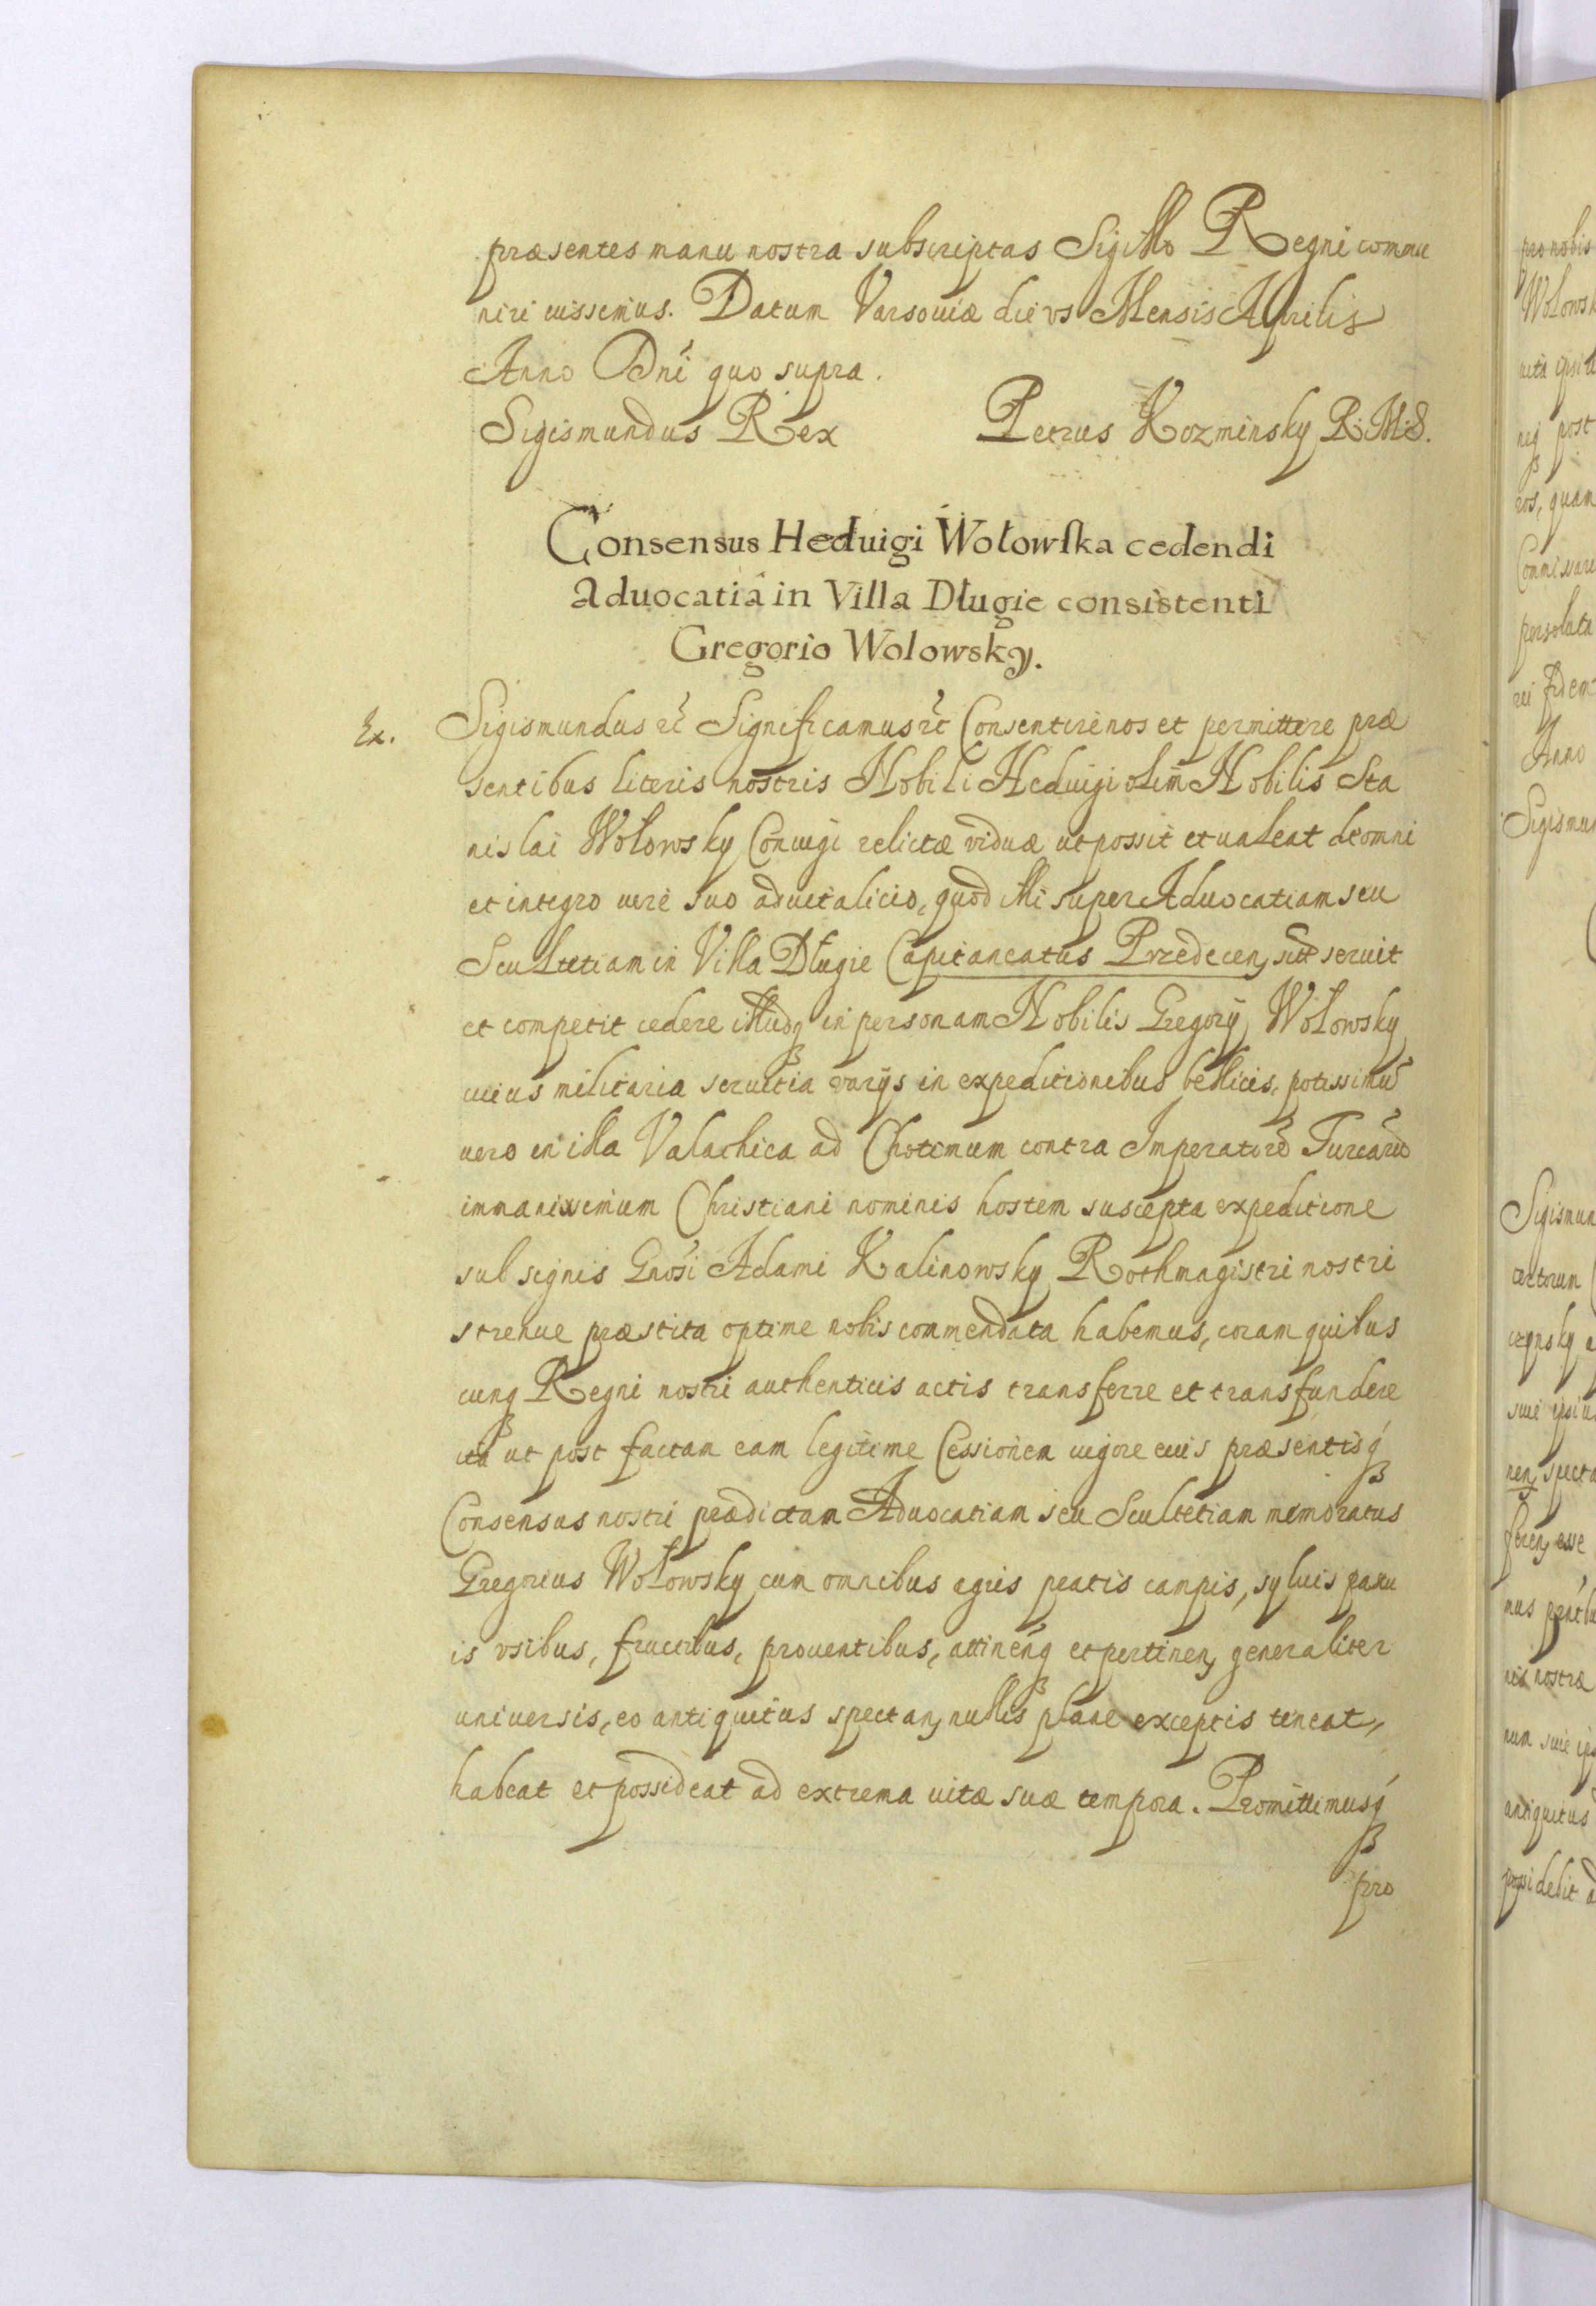 præsentes manu nostra subscriptas Sigillo Regni commu
niri iussimus. Datum Varsouiæ die vs Mensis Aprilis
Anno Dni quo supra.
Sigismundus Rex Petrus Kozminsky R. M. S.
Consensus Heduigi Wołowska cedendi
Aduocatiā in Villa Długie consistenti
Gregorio Wolowsky.
Ex. Sigismundus etc Significamus etc Consentire nos et permittere præ
sentibus literis nostris Nobili Heduigi olim Nobilis Sta
nislai Wołowsky Coniugi relictæ viduæ ut possit et ualeat de omni
et integro iure suo aduitalicio, quod illi super Aduocatiam seu
Scultetiam in Villa Długie Capitaneatus Przedecen, seruit
et competit cedere illudq in personam Nobilis Gregorij Wołowsky
cuius militaria seruitia varijs in expeditionibus bellicis, potissimū
uero in illa Valachica ad Chotimum contra Imperatorē Turcarū
immanissimum Christiani nominis hostem suscepta expeditione
sub signis Gnosi Adami Kalinowsky Rothmagistri nostri
strenue præstita optime nobis commendata habemus, coram quibus
cunq Regni nostri authenticis actis transferre et transfundere
ita ut post factam eam legitime Cessionem uigore eius præsentisq
Consensus nostri prædictam Aduocatiam seu Scultetiam memoratus
Gregorius Wołowsky cum omnibus agris pratis campis, syluis pascu
is vsibus, fructibus, prouentibus, attinenq et pertinen, generaliter
uniuersis, eo antiquitus spectan, nullis plane exceptis teneat,
habeat et possideat ad extrema uitæ suæ tempora. Promittimusq
pro